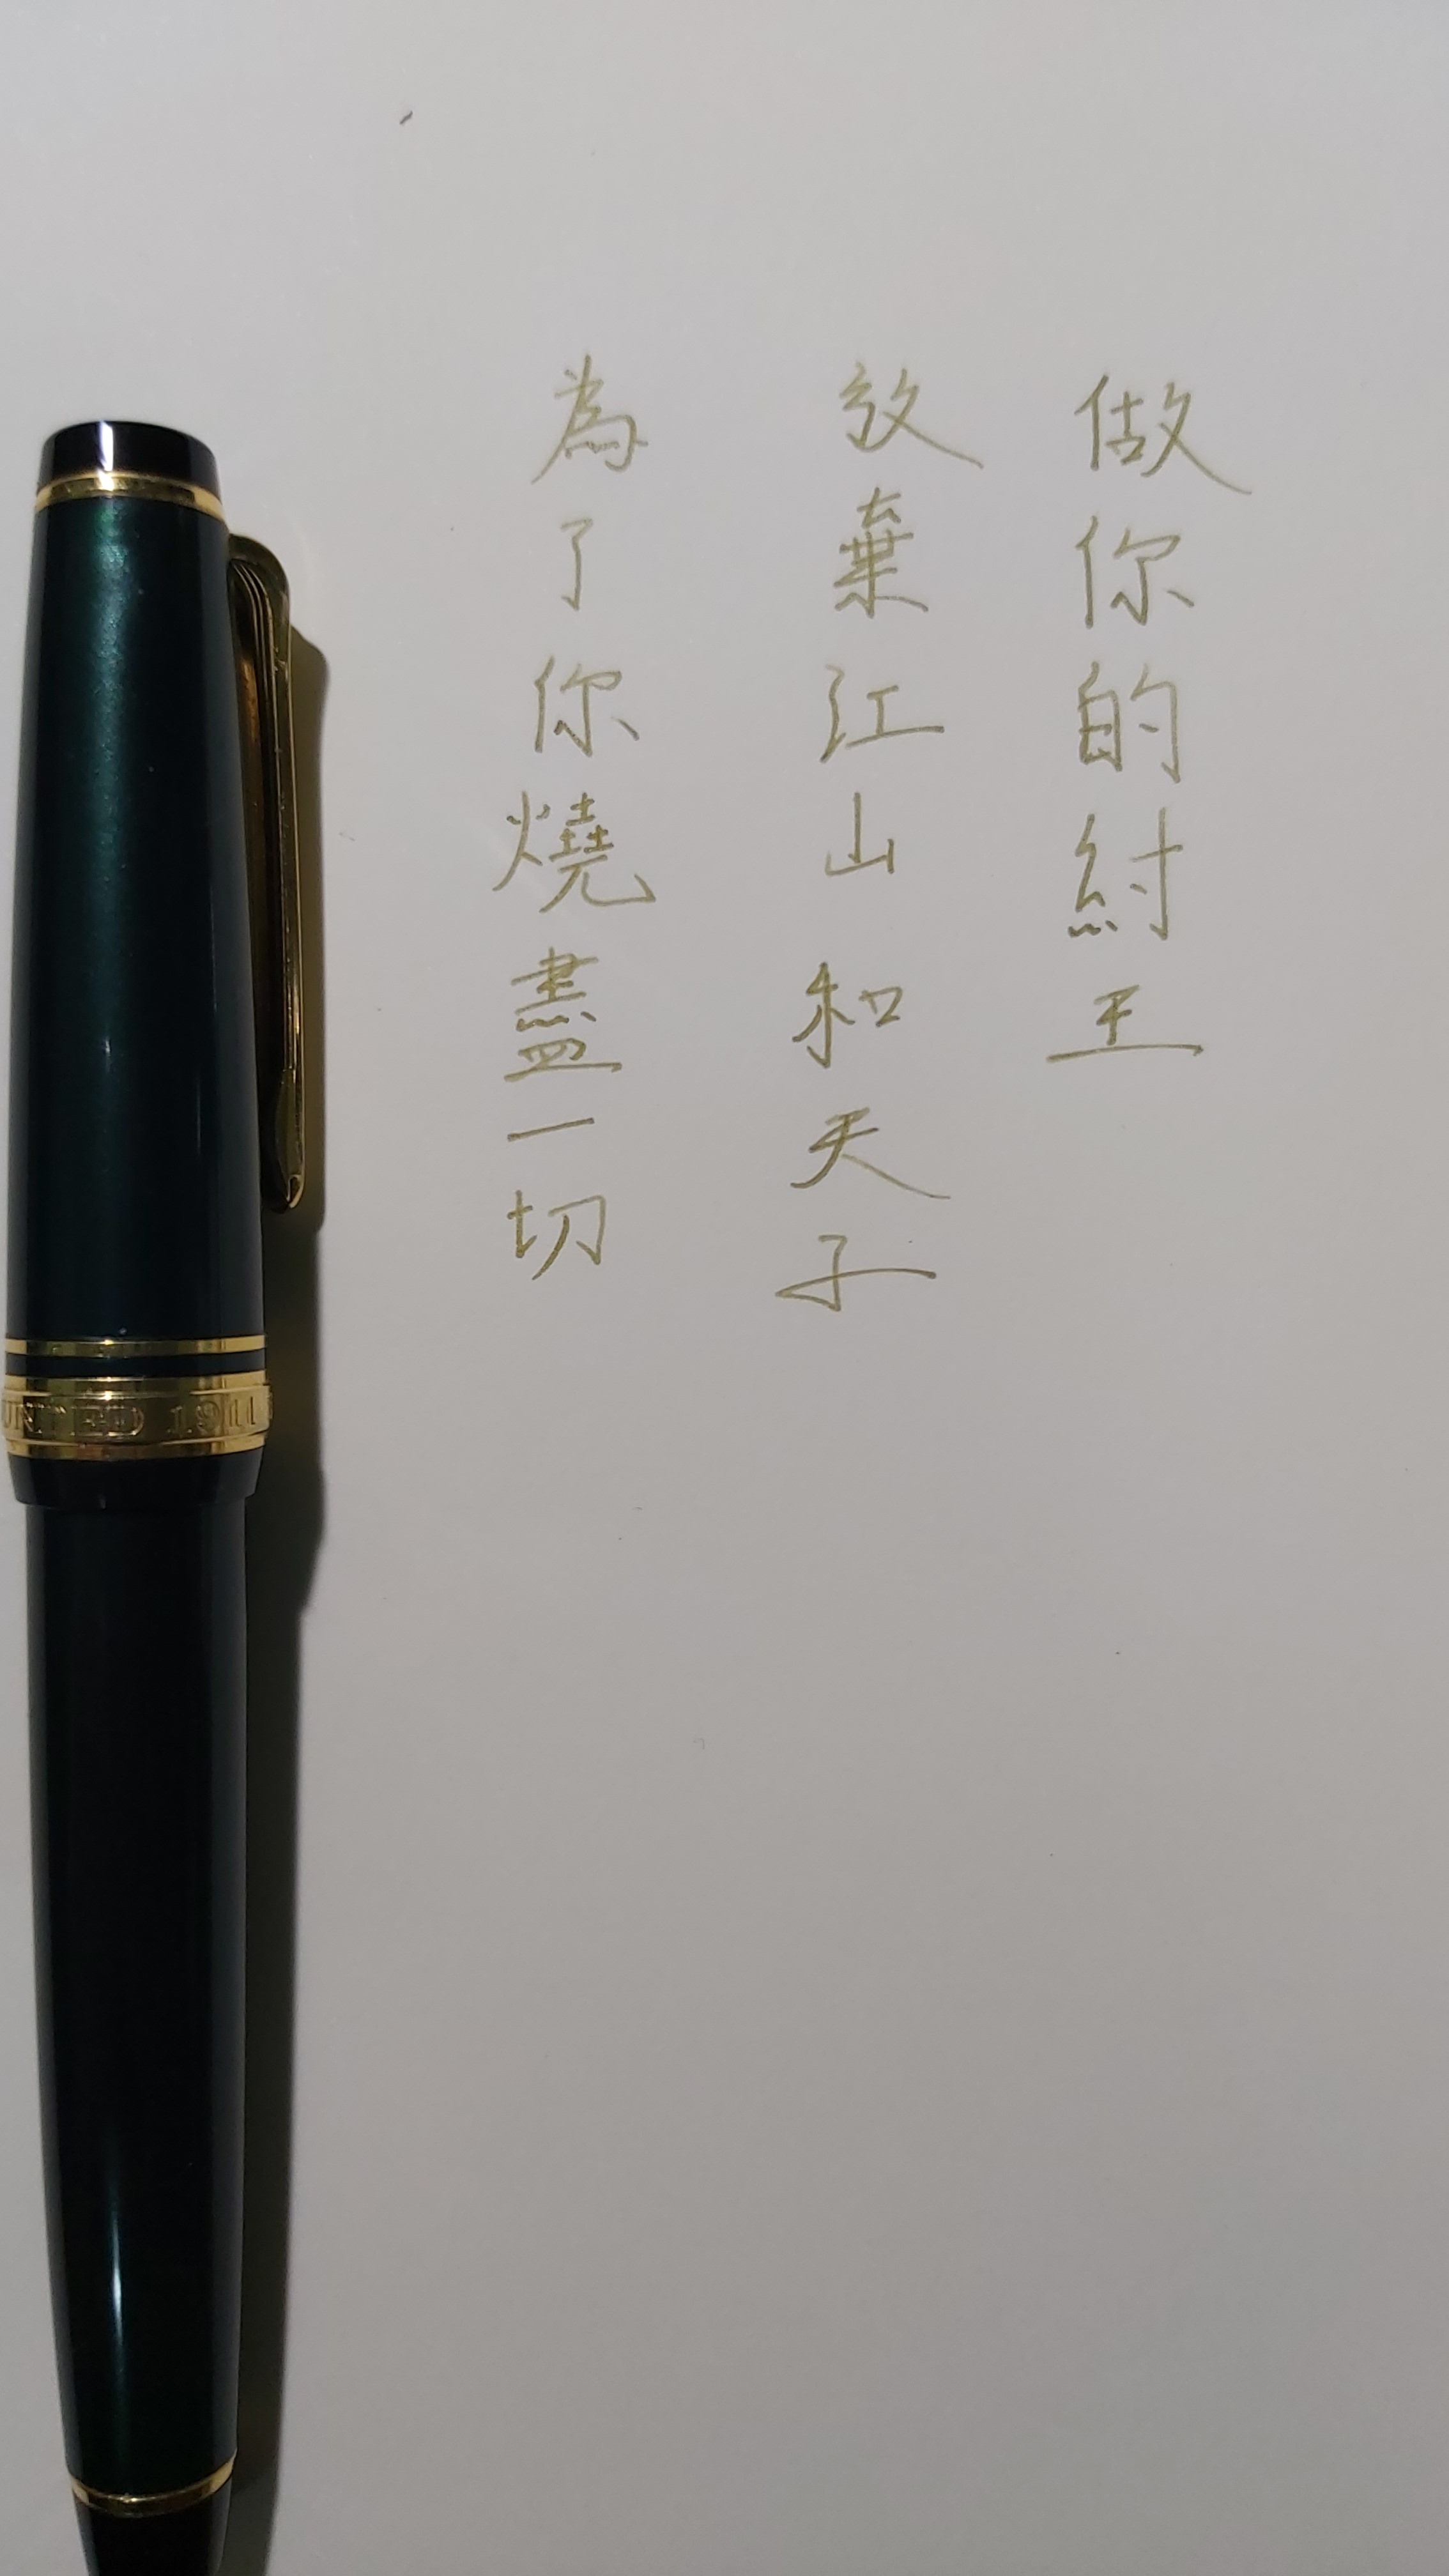 做你的紂王
放棄江山和天子
為了你燒盡一切
UNTED 1911